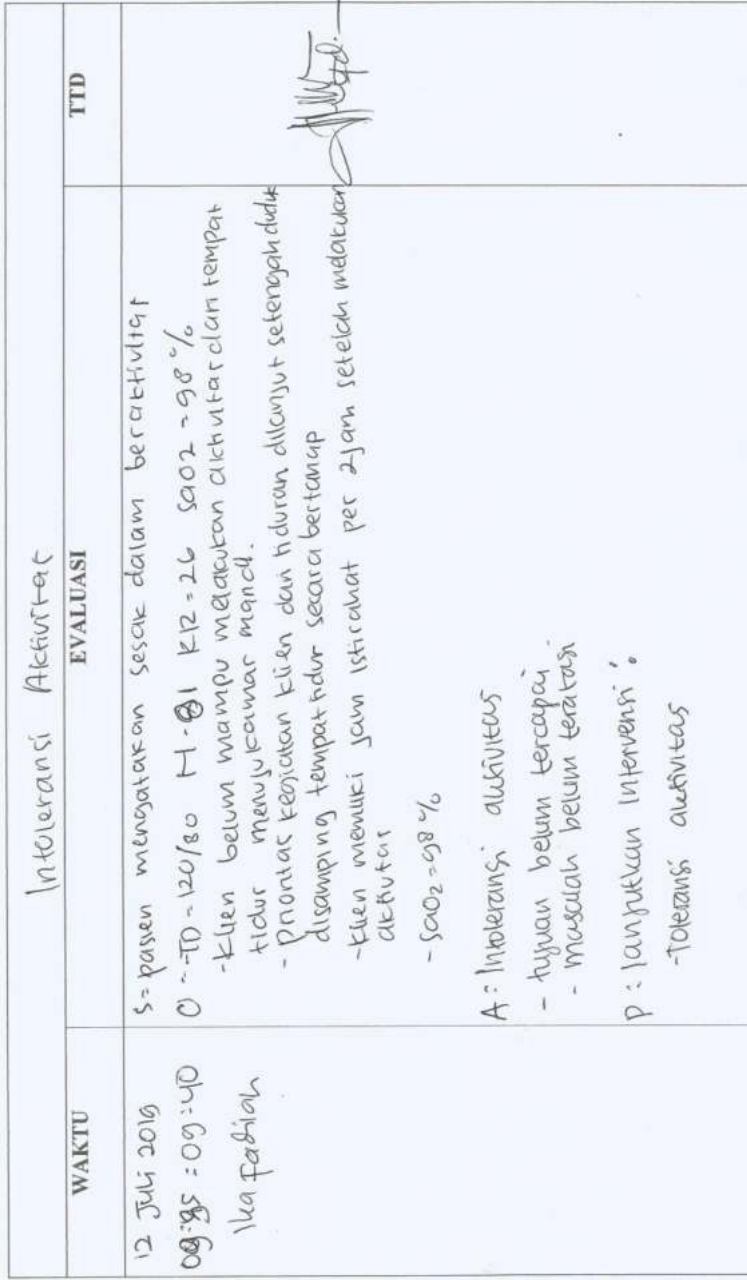 Intoleransi Aktivitas
WAKTU
EVALUASI
TTD
12 Juli 2019
: 09:40
Ika Fadilah
S = pasien mengatakan sesak dalam beraktivitas
O : -TD = 120/80 H = 81 RR = 26 SaO2 = 98 %
- Klien belum mampu melakukan aktivitas dari tempat
tidur menuju kamar mandi.
- Prioritas kegiatan klien dari tiduran dilanjut setengah duduk
disamping tempat tidur secara bertahap
- Klien memiliki jam istirahat per 2 jam setelah melakukan
aktivitas
- SaO2 = 98 %
A : Intolerangi aktivitas
- tujuan belum tercapai
- masalah belum teratasi
P : lanjutkan Intervensi :
- Toleransi aktivitas